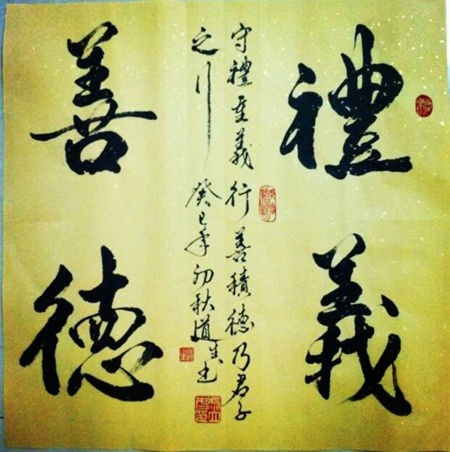 禮義
守禮重義行善積德乃君子
之行
癸巳年初秋道生书
善德